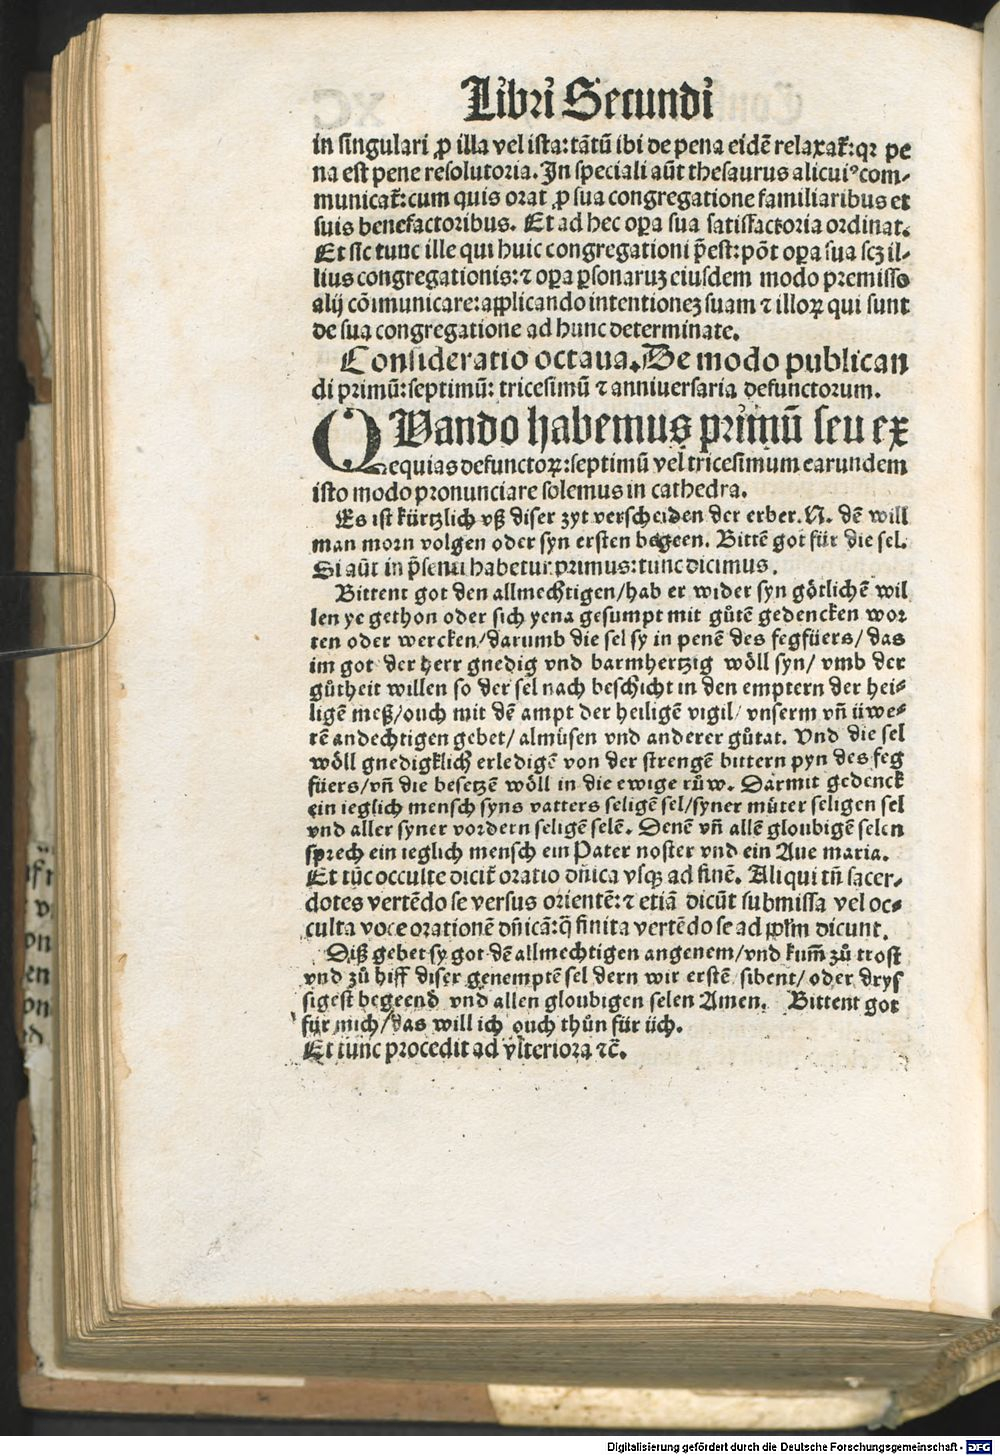 Libri Secundi
in singulari ꝓ illa vel ista: tātū ibi de pena eidē relaxat᷑: qꝛ pe
na est pene resolutoria. In speciali aūt thesaurus alicui⁹ com-
municat᷑: cum quis orat ꝓ sua congregatione familiaribus et
suis benefactoribus. Et ad hec oꝑa sua satisfactoria ordinat.
Et sic tunc ille qui huic congregationi p̄est: pōt oꝑa sua scꝫ il-
lius congregationis: ⁊ oꝑa ꝑsonaruꝫ eiusdem modo premisso
alij cōmunicare: applicando intentioneꝫ suam ⁊ illoꝝ qui sunt
de sua congregatione ad hunc determinate.
Consideratio octaua. De modo publican
di primū: septimū: tricesimū ⁊ anniuersaria defunctorum.
QUando habemus primū seu ex
equias defunctoꝝ: septimū vel tricesimum earundem
isto modo pronunciare solemus in cathedra.
Es ist kürtzlich vß diser zyt verscheiden der erber. N. dē will
man morn volgen oder syn ersten begeen. Bittē got für die sel.
Si aūt in p̄senti habetur primus: tunc dicimus.
Bittent got den allmechtigen/ hab er wider syn götlichē wil
len ye gethon oder sich yena gesumpt mit gůtē gedencken wor
ten oder wercken/ darumb die sel sy in penē des fegfüers/ das
im got der herr gnedig vnd barmhertzig wöll syn/ vmb der
gůtheit willen so der sel nach beschicht in den emptern der hei-
ligē meß/ ouch mit dē ampt der heiligē vigil/ vnserm vn̄ üwe-
rē andechtigen gebet/ almůsen vnd anderer gůtat. Vnd die sel
wöll gnedigklich erledigē von der strengē bittern pyn des feg
füers/ vn̄ die besetzē wöll in die ewige růw. Darmit gedenck
ein ieglich mensch syns vatters seligē sel/ syner můter seligen sel
vnd aller syner vordern seligē selē. Denē vn̄ allē gloubigē selen
sprech ein ieglich mensch ein Pater noster vnd ein Aue maria.
Et tūc occulte dicit᷑ oratio dn̄ica vsqꝫ ad finē. Aliqui tn̄ sacer-
dotes vertēdo se versus orientē: ⁊ etiā dicūt submissa vel oc-
culta voce orationē dn̄icā: q̄ finita vertēdo se ad ppl̄m dicunt.
Diß gebet sy got dē allmechtigen angenem/ vnd kum̄ zů trost
vnd zů hilff diser genemptē sel dern wir erstē sibent/ oder drys
sigest begeend vnd allen gloubigen selen Amen. Bittent got
für mich/ das will ich ouch thůn für üch.
Et tunc procedit ad vlteriora ⁊c̄.
Digitalisierung gefördert durch die Deutsche Forschungsgemeinschaft - DFG